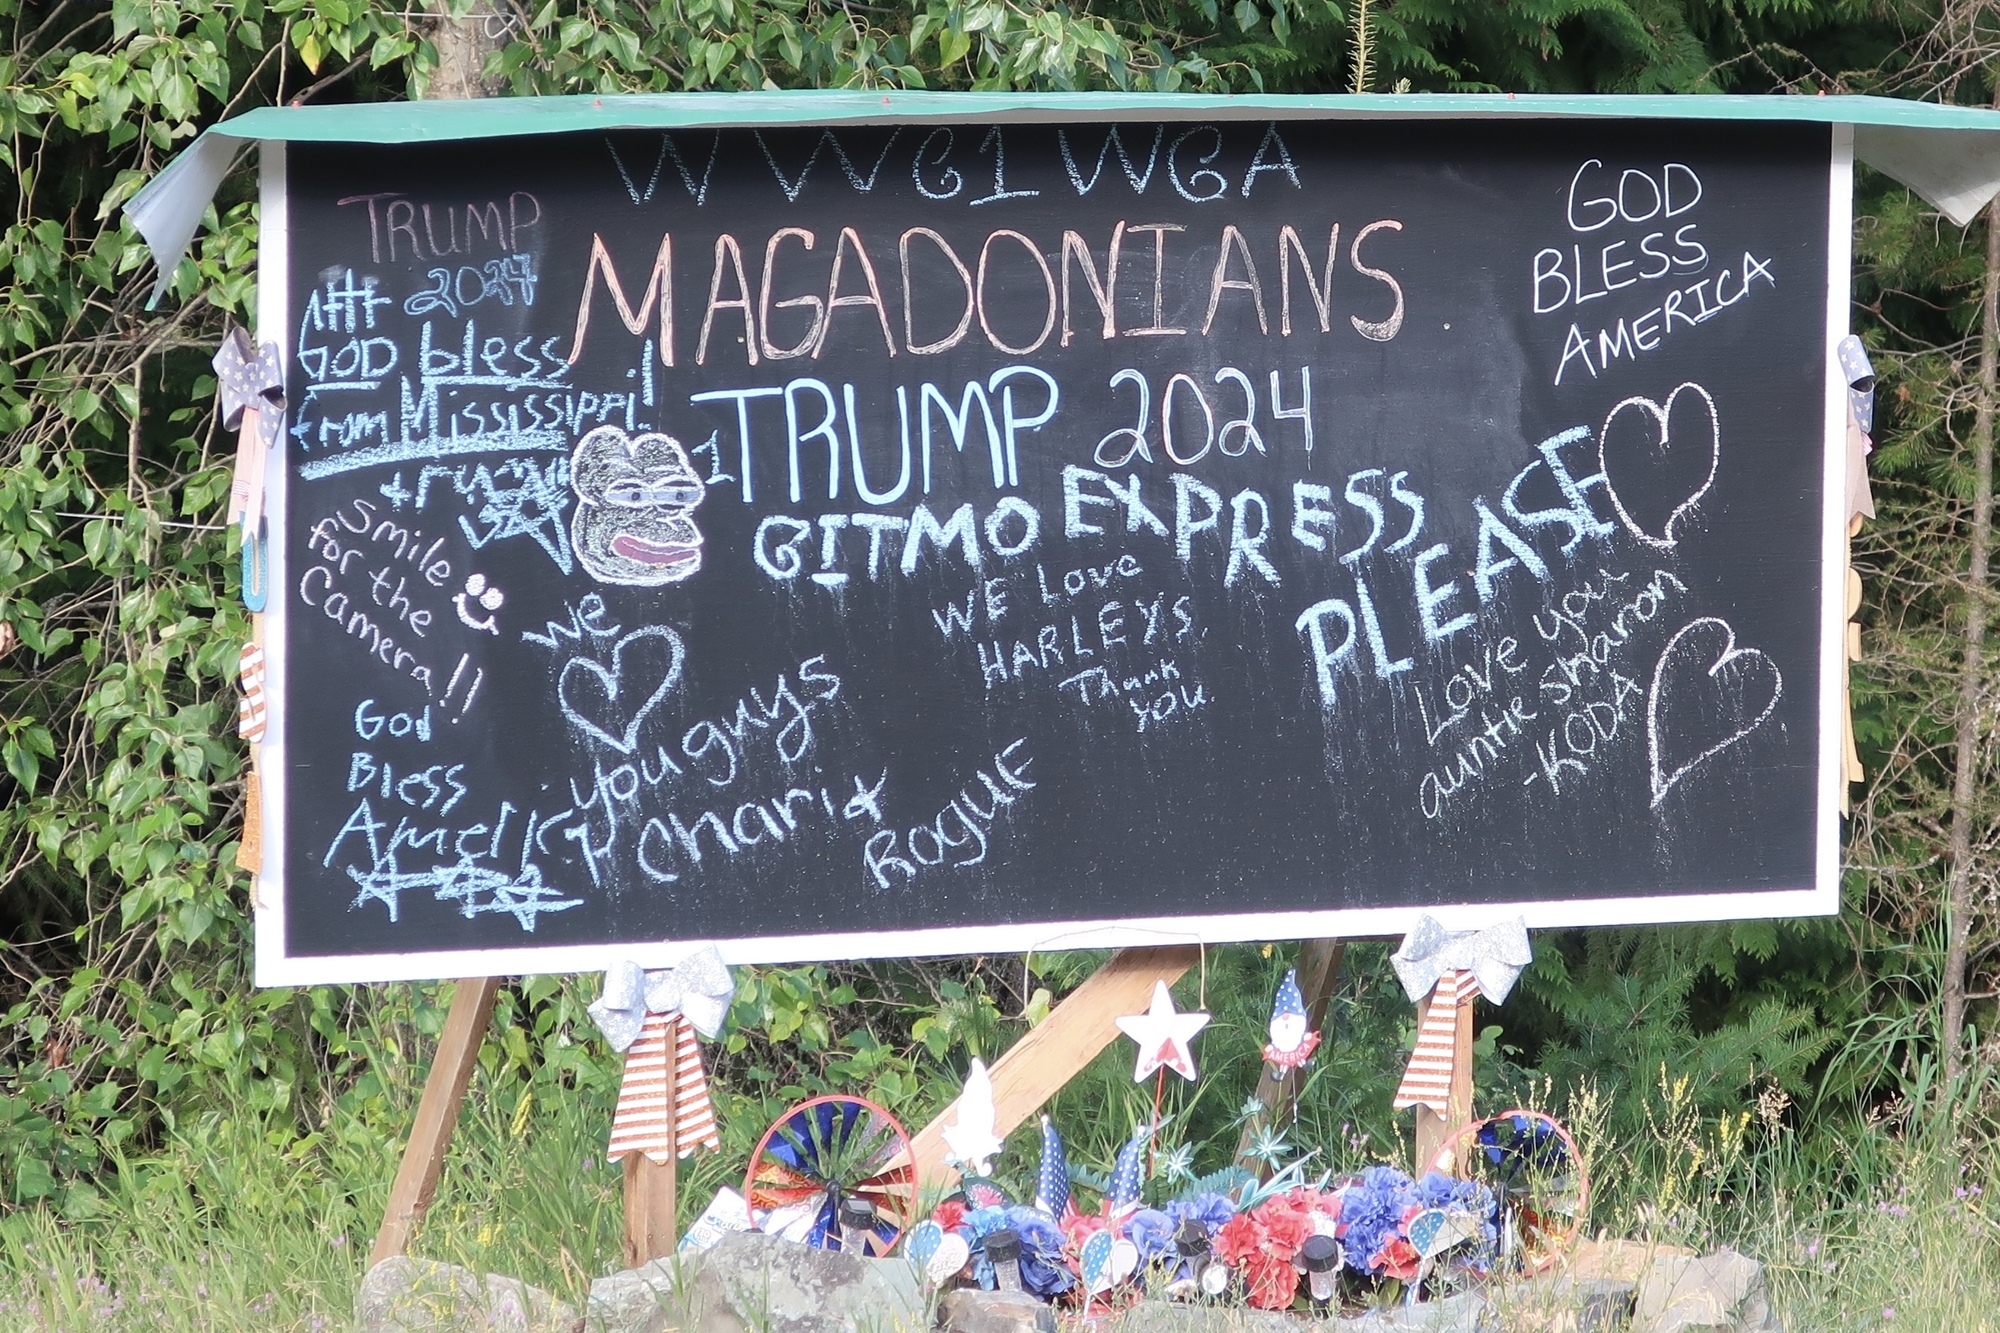 WWG1WGA
MAGADONIANS
TRUMP 2024
GITMO EXPRESS
PLEASE
TRUMP
2024
GOD bless
from Mississippi!
Smile
for the
Camera!!
God
Bless
America
We
you guys
Chari &
Rogue
WE Love
HARLEYS.
Thank
you
GOD
BLESS
AMERICA
Love you
auntie sharon
-KODA
AMERICA